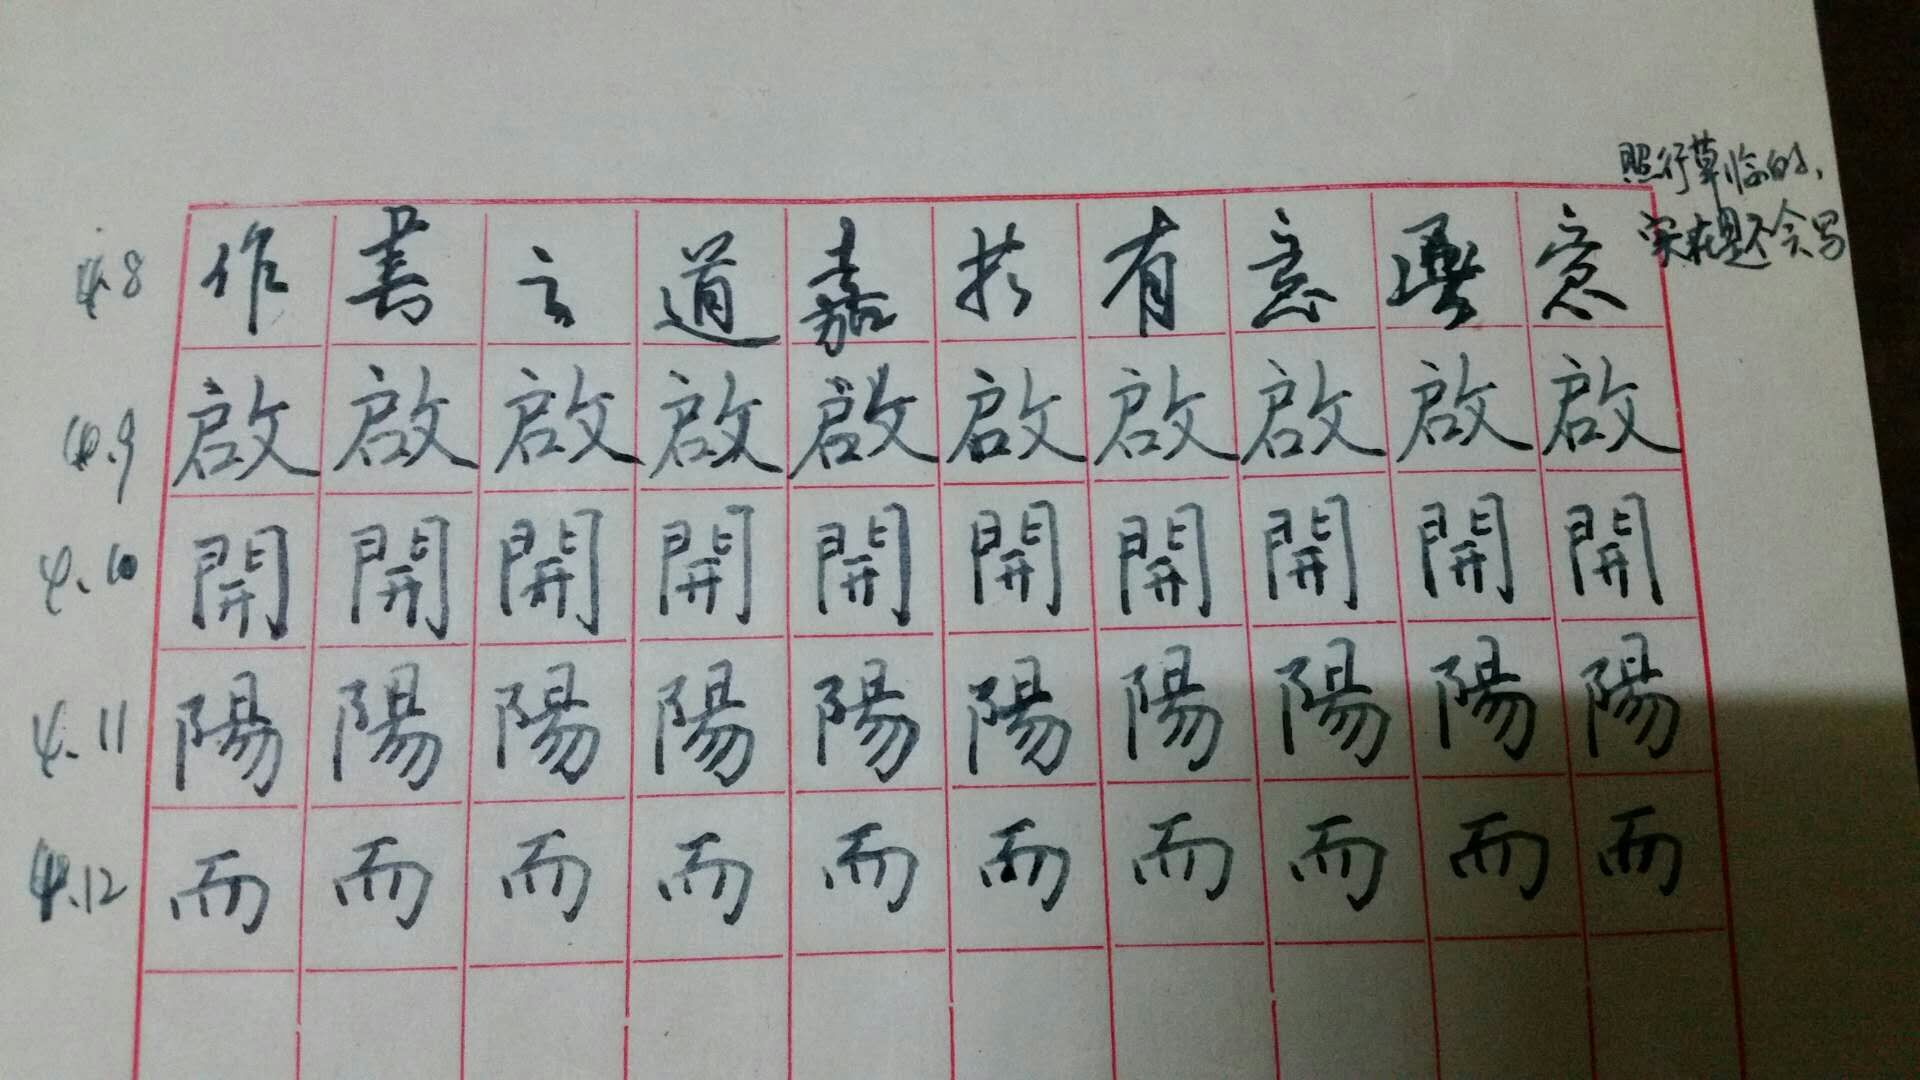 照行草临的,
实在是不会写
4.8 作 書 言 道 嘉 於 有 意 意
4.9 啟 啟 啟 啟 啟 啟 啟 啟 啟 啟
4.10 開 開 開 開 開 開 開 開 開 開
4.11 陽 陽 陽 陽 陽 陽 陽 陽 陽 陽
4.12 而 而 而 而 而 而 而 而 而 而